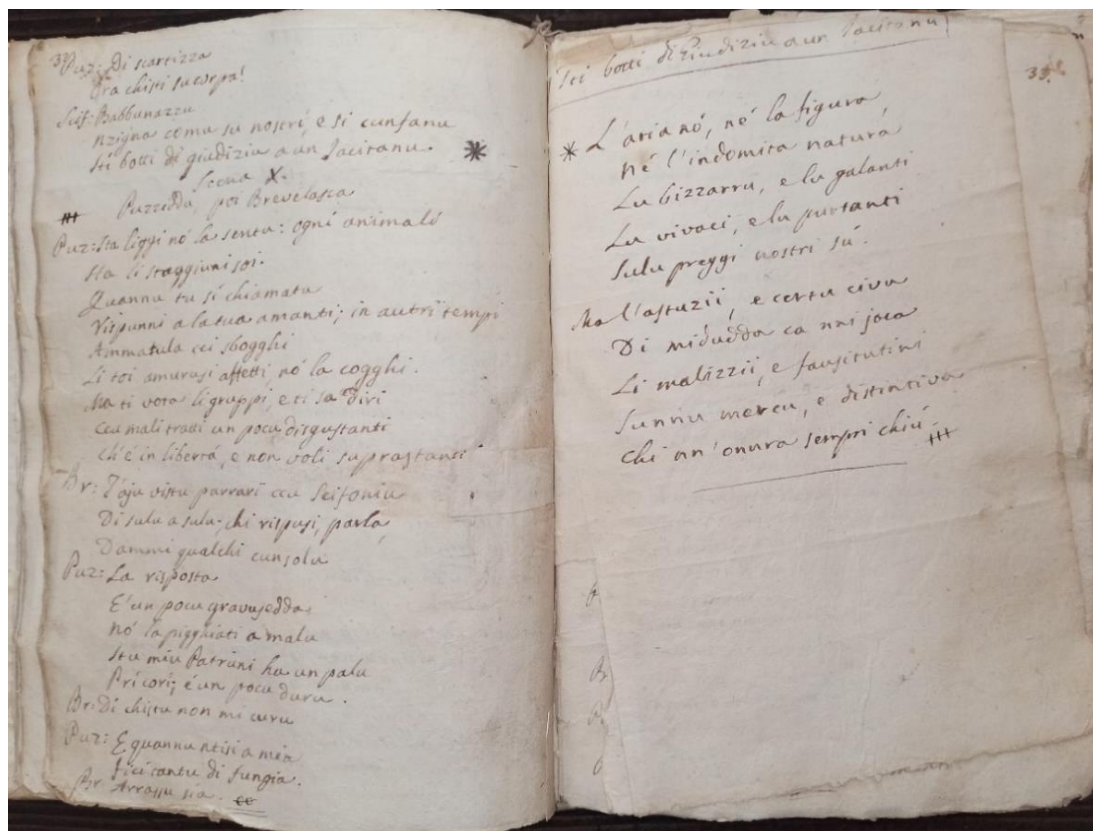 32
Puz: Di scartizza
Ora chisti su corpa!
Scif: Babbunazzu
nzigna comu su nostri, e si cunfanu
sti botti di giudiziu a un Jacitanu. *
Scena X.
Puzzedda, poi Brevelasca
Puz: Sta liggi nó la sentu: ogni animali
Ha li staggiuni soi.
Quannu tu si chiamatu
Rispunni a la tua amanti; in autri tempi
Ammatula cci sbogghi
Li toi amurusi affetti, nó la cogghi.
Ma ti vota li gruppi, e ti sa diri
Ccu mali tratti un pocu disgustanti
Ch'é in libertá, e non voli suprastanti
Br: T'aju vistu parrari ccu Scifoniu
Di sulu a sulu; chi rispusi, parla,
Dammi qualchi cunsolu
Puz: La risposta
E' un pocu gravusedda;
nó la pigghiati a malu
Stu miu Patruni ha un palu
Pri cori; é un pocu duru.
Br: Di chistu non mi curu
Puz: E quannu ntisi a mia
fici santu di fungia.
Br: Arrassu sia.
Sti botti di giudiziu a un Jacitanu
33
* L'aria nó, né la figura
né l'indomita natura
Lu bizzarru, e lu galanti
Lu vivaci, e lu purtanti
Sulu preggi nostri sú.
Ma l'astuzii, e certu civu
Di midudda ca nni joca
Li malizzii, e fausitutini
Sunnu mercu, e distintivu
Chi nn'onura sempri chiú.